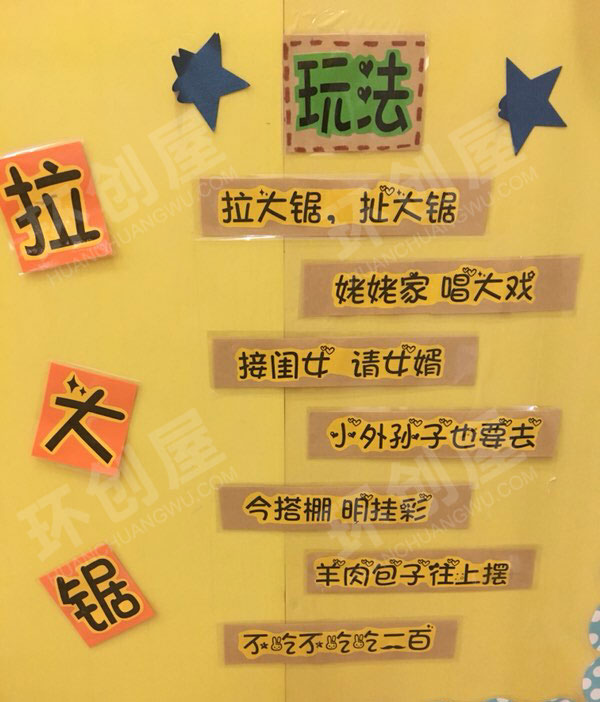 玩法
拉大锯
拉大锯，扯大锯
姥姥家 唱大戏
接闺女 请女婿
小外孙子也要去
今搭棚 明挂彩
羊肉包子往上摆
不吃不吃吃二百
环创屋
HUANCHUANGWU.COM